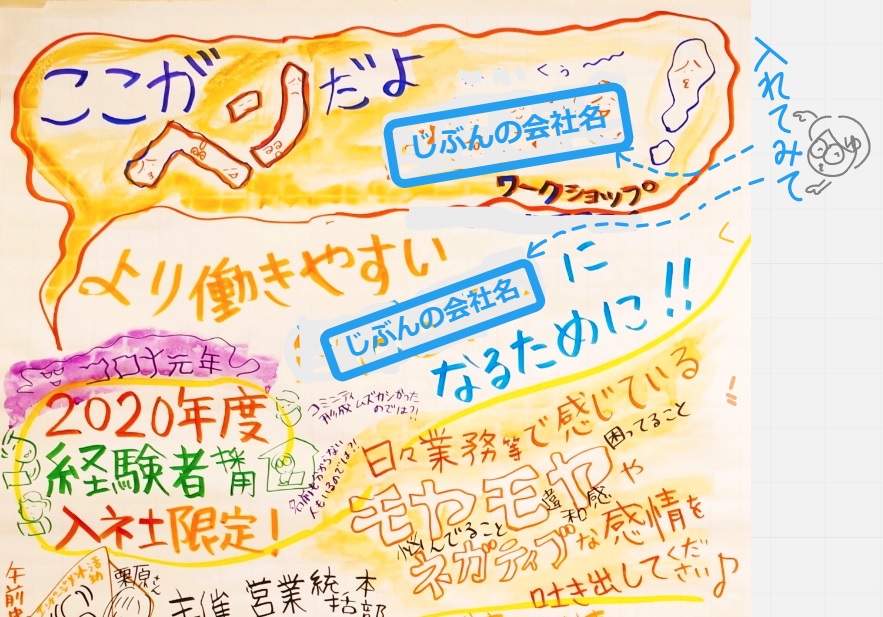 ここが
ヘンだよ
くぅ〜
じぶんの会社名
ワークショップ
入れてみて
ゆ
より働きやすい
じぶんの会社名
に
なるために!!
コロナ元年
2020年度
経験者採用
入社限定!
コミニティ
形成ムズカシかった
のでは?!
名前も分からない
人もいるのでは?!
日々業務等で感じている
困ってること
モヤモヤや
違和感
悩んでること
ネガティブな感情を
吐き出してください♪
午前中
栗原さん
主催 営業統括本部